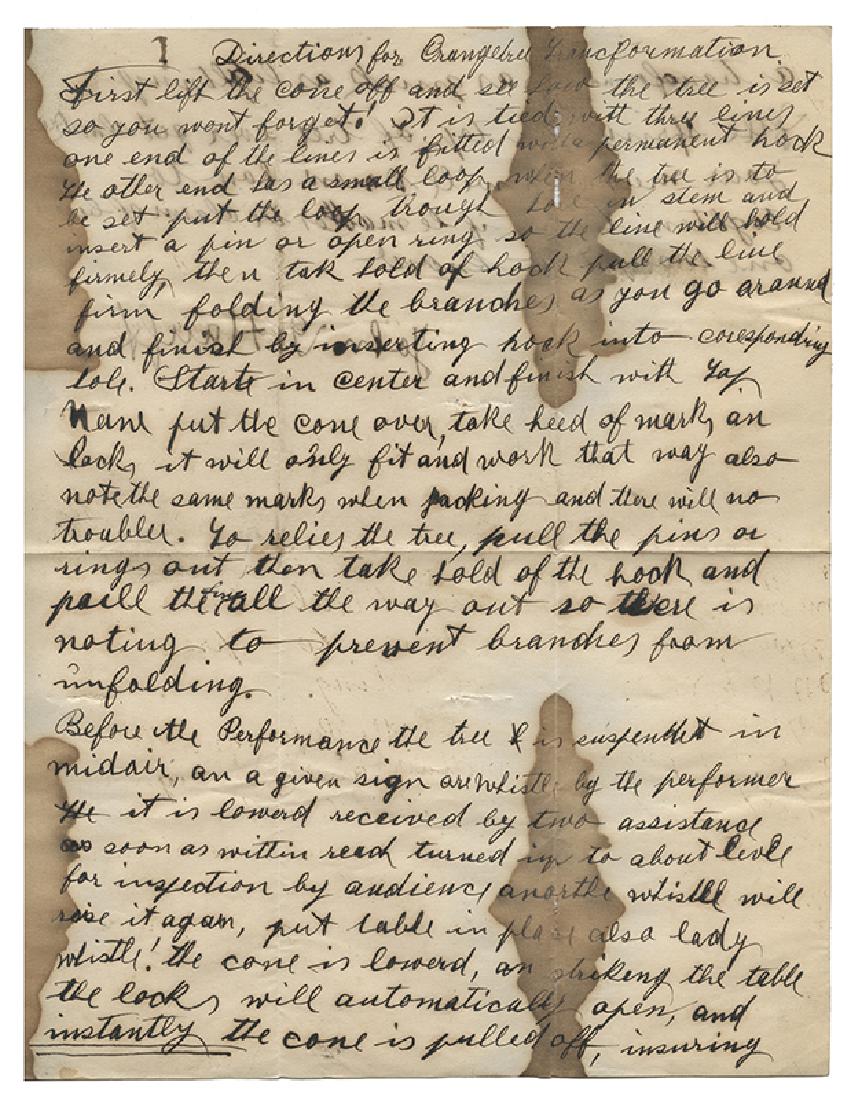 1 Directions for Orangetree Trancformation
First lift the cone off and see how the tree is set
so you wont forget! It is tied with three lines
one end of the lines is fitted with a permanent hock
the other end has a small loop, when the tree is to
be set put the loop trough hole in stem and
insert a pin or open ring so the line will hold
firmely, then tak hold of hock pull the line
firm folding the branches as you go around
and finish by inserting hock into coresponding
hole. Starte in center and finish with Top
put the cone over, take heed of mark, an
lock, it will only fit and work that way also
note the same marks when packing and there will no
troubler. To relies the tree, pull the pins or
rings out then take hold of the hock and
paill the all the way out so there is
noting to prewent branches from
unfolding.
Before the Performance the tree is suspended in
midair, an a given sign are whistle by the performer
He it is lowerd received by two assistance
as soon as within reach turned up to about levle
for inspection by audience anorthe whistle will
rise it again, put table in place also lady
whistle! the cone is lowerd, an striking the table
the locks will automatically open, and
instantly the cone is pulled off, insuring